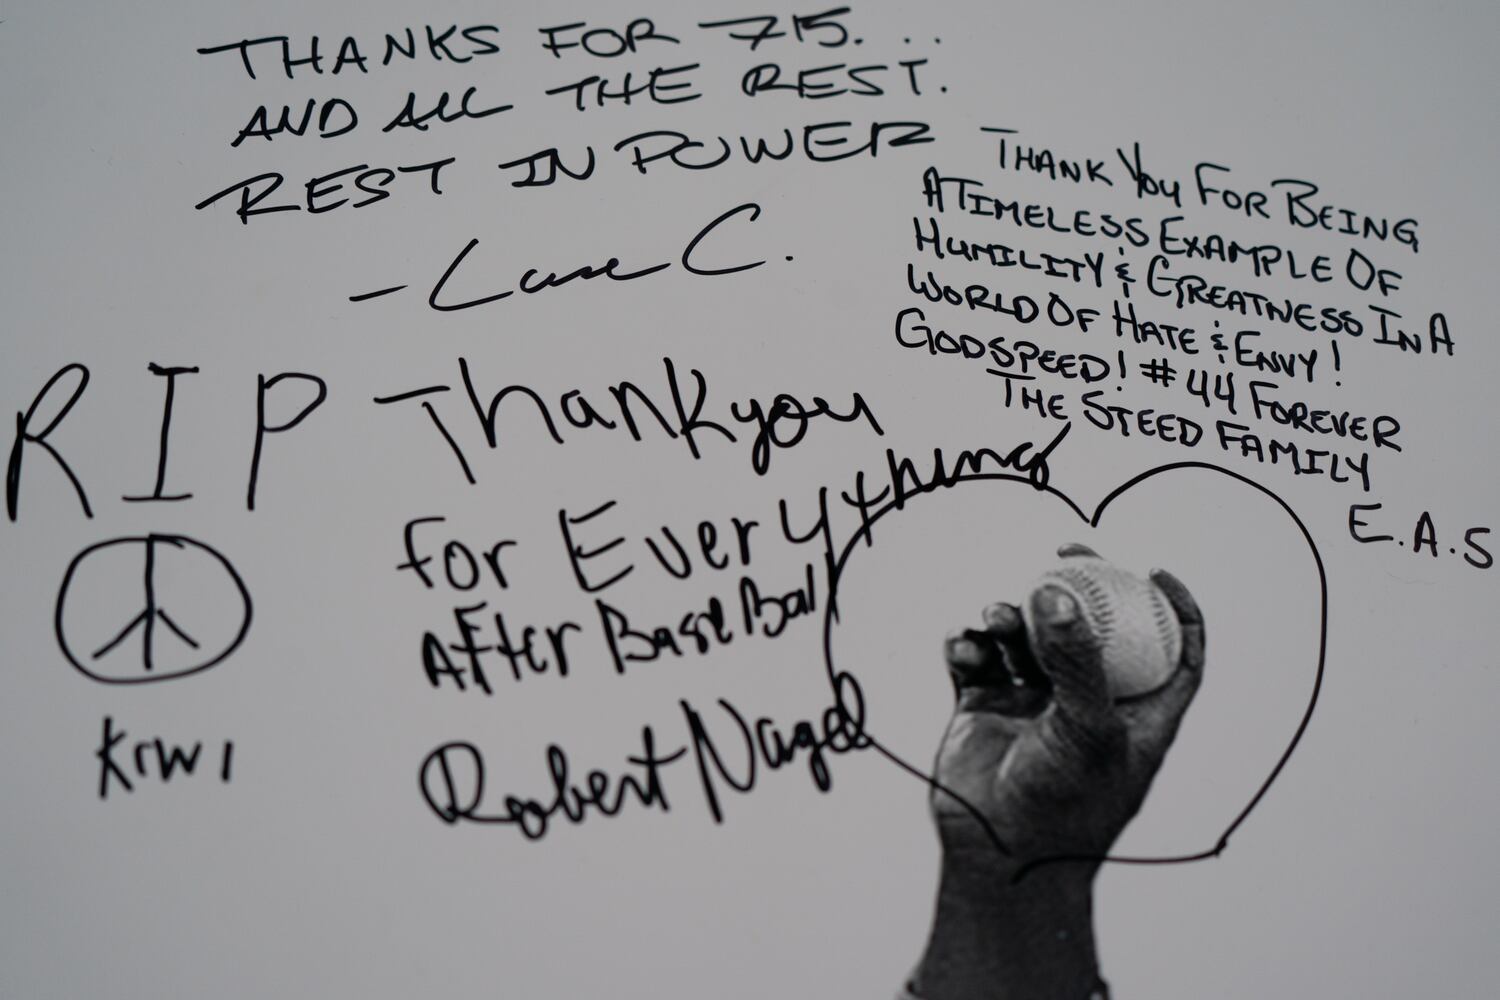 THANKS FOR 715...
AND ALL THE REST.
REST IN POWER
C.
THANK YOU FOR BEING
A TIMELESS EXAMPLE OF
HUMILITY & GREATNESS IN A
WORLD OF HATE & ENVY!
GODSPEED! #44 FOREVER
THE STEED FAMILY
E.A.S
RIP
KIWI
Thank you
for Everything
After BaseBall
Robert Nagel